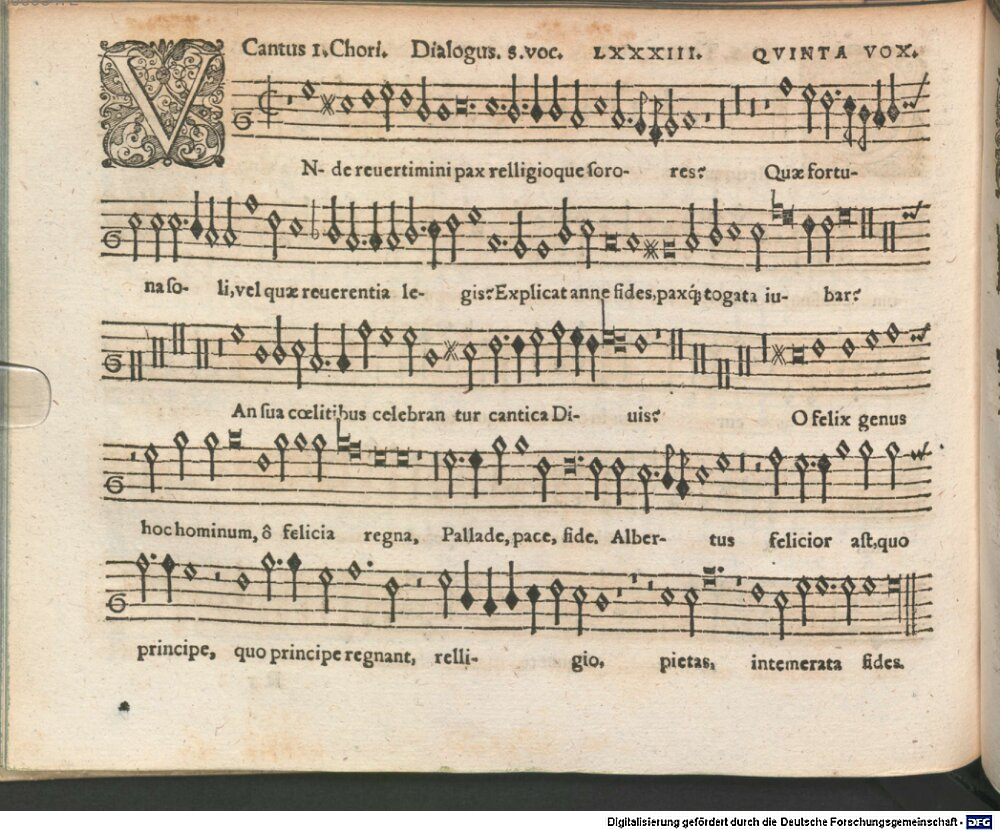 Cantus 1. Chori. Dialogus. 8. voc. LXXXIII. QVINTA VOX.
VN- de reuertimini pax relligioque soro- res? Quæ fortu-
na so- li, vel quæ reuerentia le- gis? Explicat anne fides, paxq́; togata iu- bar?
An sua cœlitibus celebran tur cantica Di- uis? O felix genus
hoc hominum, ô felicia regna, Pallade, pace, fide. Alber- tus felicior ast, quo
principe, quo principe regnant, relli- gio, pietas, intemerata fides.
Digitalisierung gefördert durch die Deutsche Forschungsgemeinschaft - DFG